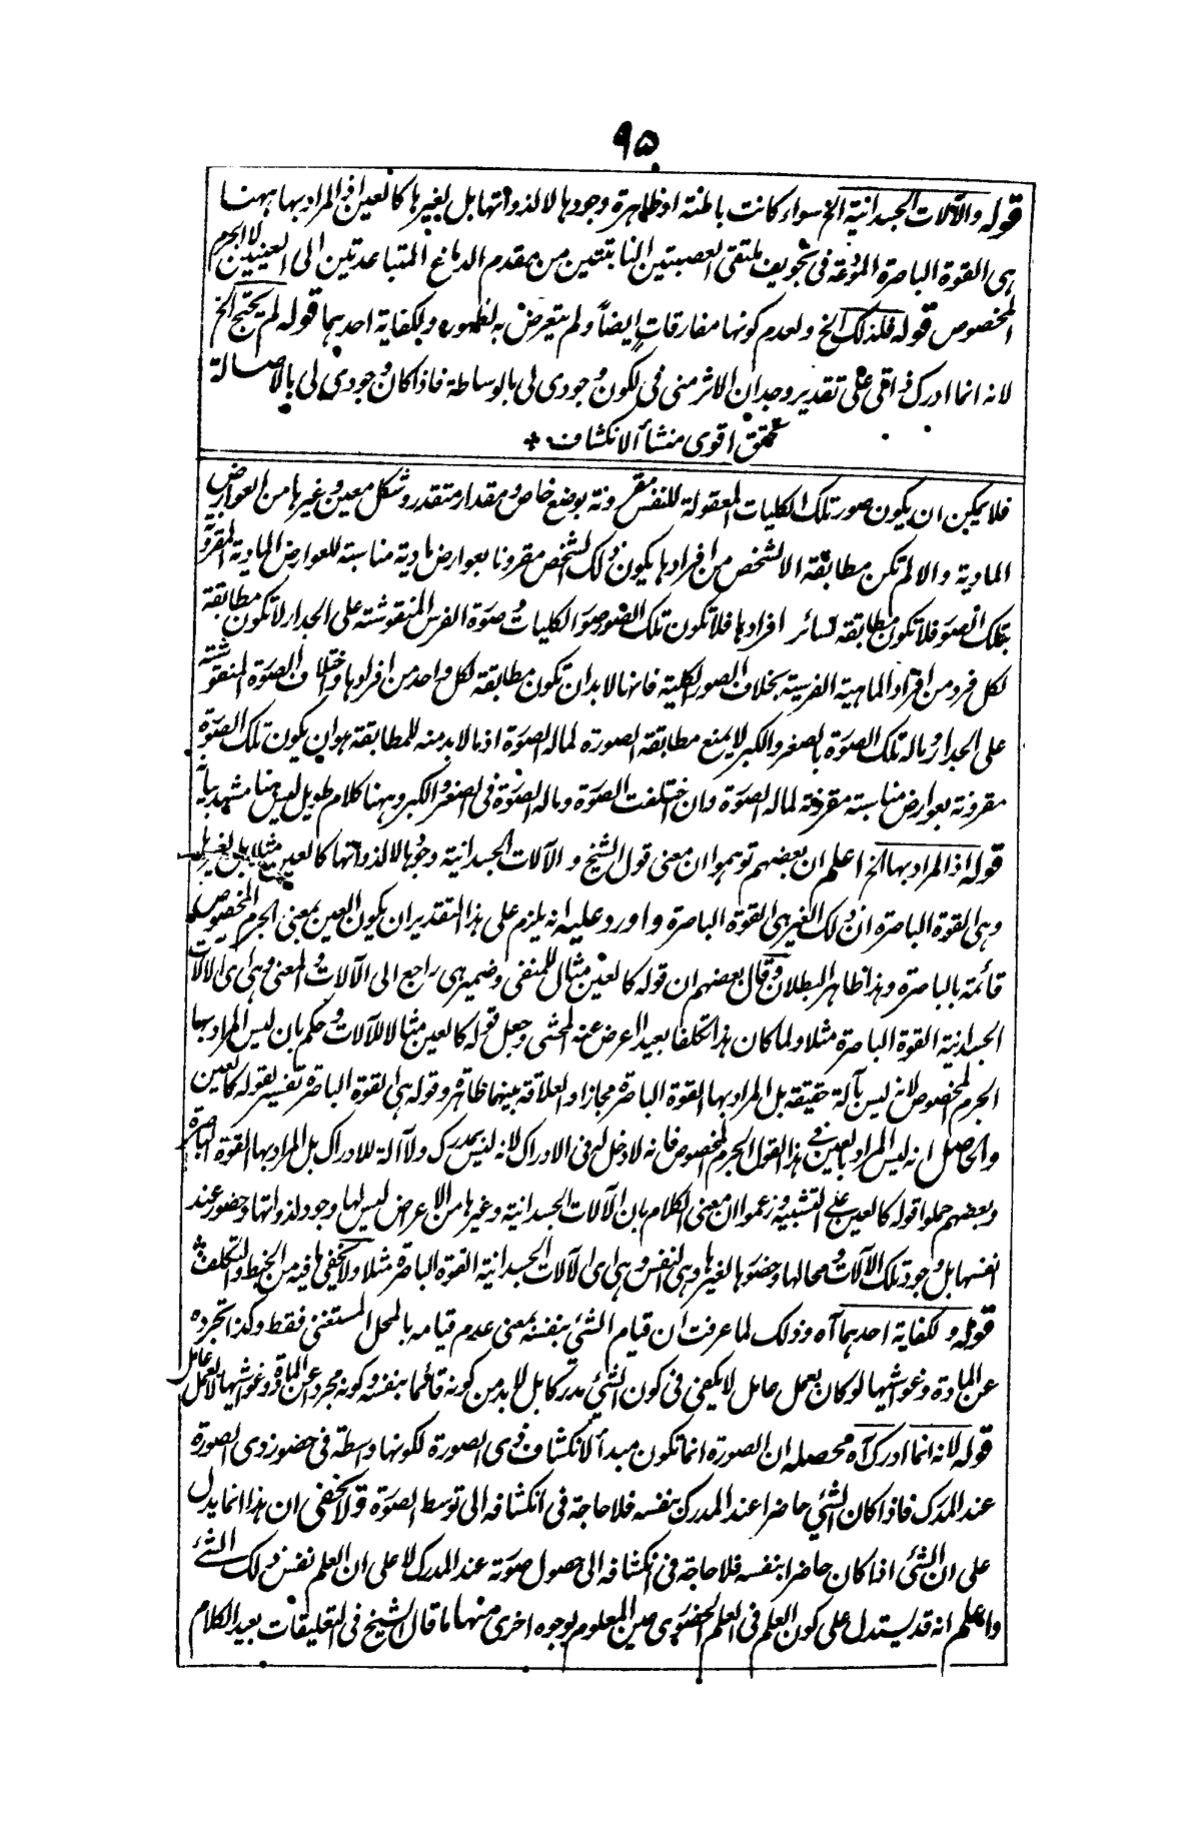 ٩٥
قوله والآلات الجسدانية الخ سواء كانت باطنة او ظاهرة وجودها لا لذواتها بل لغيرها كالعين اذ المراد بها ههنا
هى القوة الباصرة المودعة فى تجويف ملتقى العصبتين النابتتين من مقدم الدماغ المتباعدتين الى العينين لا الجرم
المخصوص قوله فلذلك الخ ولعدم كونها مفارقات ايضاً ولم يتعرض به لظهوره ولكفاية احدهما قوله لم يحتج الخ
لانه انما ادرك ذاتى على تقدير وجدان الاثر منى فى لكون وجودى لى بالوساطة فاذا كان وجودى لى بالاصالة
تحقق اقوى منشأ الانكشاف +
فلا يمكن ان يكون صور تلك الكليات المعقولة للنفس مقرونة بوضع خاص ومقدار متقدر وشكل معين وغيرها من العوارض
المادية والا لم تكن مطابقة الا لشخص من افرادها يكون ذلك الشخص مقرونا بعوارض مادية مناسبة للعوارض المادية المقرونة
بتلك الصور فلا تكون مطابقة لسائر افرادها فلا تكون تلك الصور صور الكليات وصورة الفرس المنقوشة على الجدار لا تكون مطابقة
لكل فرد من افراد الماهية الفرسية بخلاف الصور الكلية فانها لا بد ان تكون مطابقة لكل واحد من افرادها واختلاف الصورة المنقوشة
على الجدار وماله تلك الصورة بالصغر والكبر لا يمنع مطابقة الصورة لماله الصورة اذ ما لا بد منه للمطابقة هو ان يكون تلك الصورة
مقرونة بعوارض مناسبة مقرونة لماله الصورة وان اختلفت الصورة وماله الصورة فى الصغر والكبر وههنا كلام طويل ليس هنا مشهد بيانه
قوله اذ المراد بها الخ اعلم ان بعضهم توهموا ان معنى قول الشيخ والآلات الجسدانية وجودها لا لذواتها كالعين مثلا بل لغيرها
وهى القوة الباصرة ان ذلك الغير هى القوة الباصرة واورد عليه انه يلزم على هذا التقدير ان يكون العين بمعنى الجرم المخصوص
قائمة بالباصرة وهذا ظاهر البطلان وقال بعضهم ان قوله كالعين مثال للمنفى وضمير هى راجع الى الآلات والمعنى وهى اى الآلات
الجسدانية القوة الباصرة مثلا ولما كان هذا تكلفا بعيدا اعرض عنه المحشى وجعل قوله كالعين مثالا للآلات وحكم بان ليس المراد بها
الجرم المخصوص لانه ليس بآلة حقيقة بل المراد بها القوة الباصرة مجازا والعلاقة بينهما ظاهرة وقوله هى القوة الباصرة تفسير لقوله كالعين
والحاصل انه ليس المراد بالعين فى هذا القول الجرم المخصوص فانه لا دخل له فى الادراك لانه ليس بمدرك ولا آلة للادراك بل المراد بها القوة الباصرة
وبعضهم حملوا قوله كالعين على التشبيه وزعموا ان معنى الكلام بان الآلات الجسدانية وغيرها من الاعراض ليس لها وجود لذواتها وحضور عند
انفسها بل وجود تلك الآلات لمحالها وحضورها لغيرها وهى النفس وهى اى الآلات الجسدانية القوة الباصرة مثلا ولا يخفى ما فيه من الخبط والتكلف
قوله ولكفاية احدهما آه وذلك لما عرفت ان قيام الشئ بنفسه بمعنى عدم قيامه بالمحل المستغنى فقط وكذا تجرده
عن المادة وغواشيها لو كان بعمل عامل لا يكفى فى كون الشئ مدركا بل لا بد من كونه قائما بنفسه وكونه مجردا عن المادة وغواشيها لا بعمل عامل
قوله لانه انما ادرك آه محصله ان الصورة انما تكون مبدأ لانكشاف ذى الصورة لكونها واسطة فى حضور ذى الصورة
عند المدرك فاذا كان الشئ حاضرا عند المدرك بنفسه فلا حاجة فى انكشافه الى توسط الصورة ولا يخفى ان هذا انما يدل
على ان الشئ اذا كان حاضرا بنفسه فلا حاجة فى انكشافه الى حصول صورة عند المدرك لا على ان العلم نفس ذلك الشئ
واعلم انه قد يستدل على كون العلم فى العلم الحضورى عين المعلوم بوجوه اخرى منها ما قال الشيخ فى التعليقات بعيد الكلام